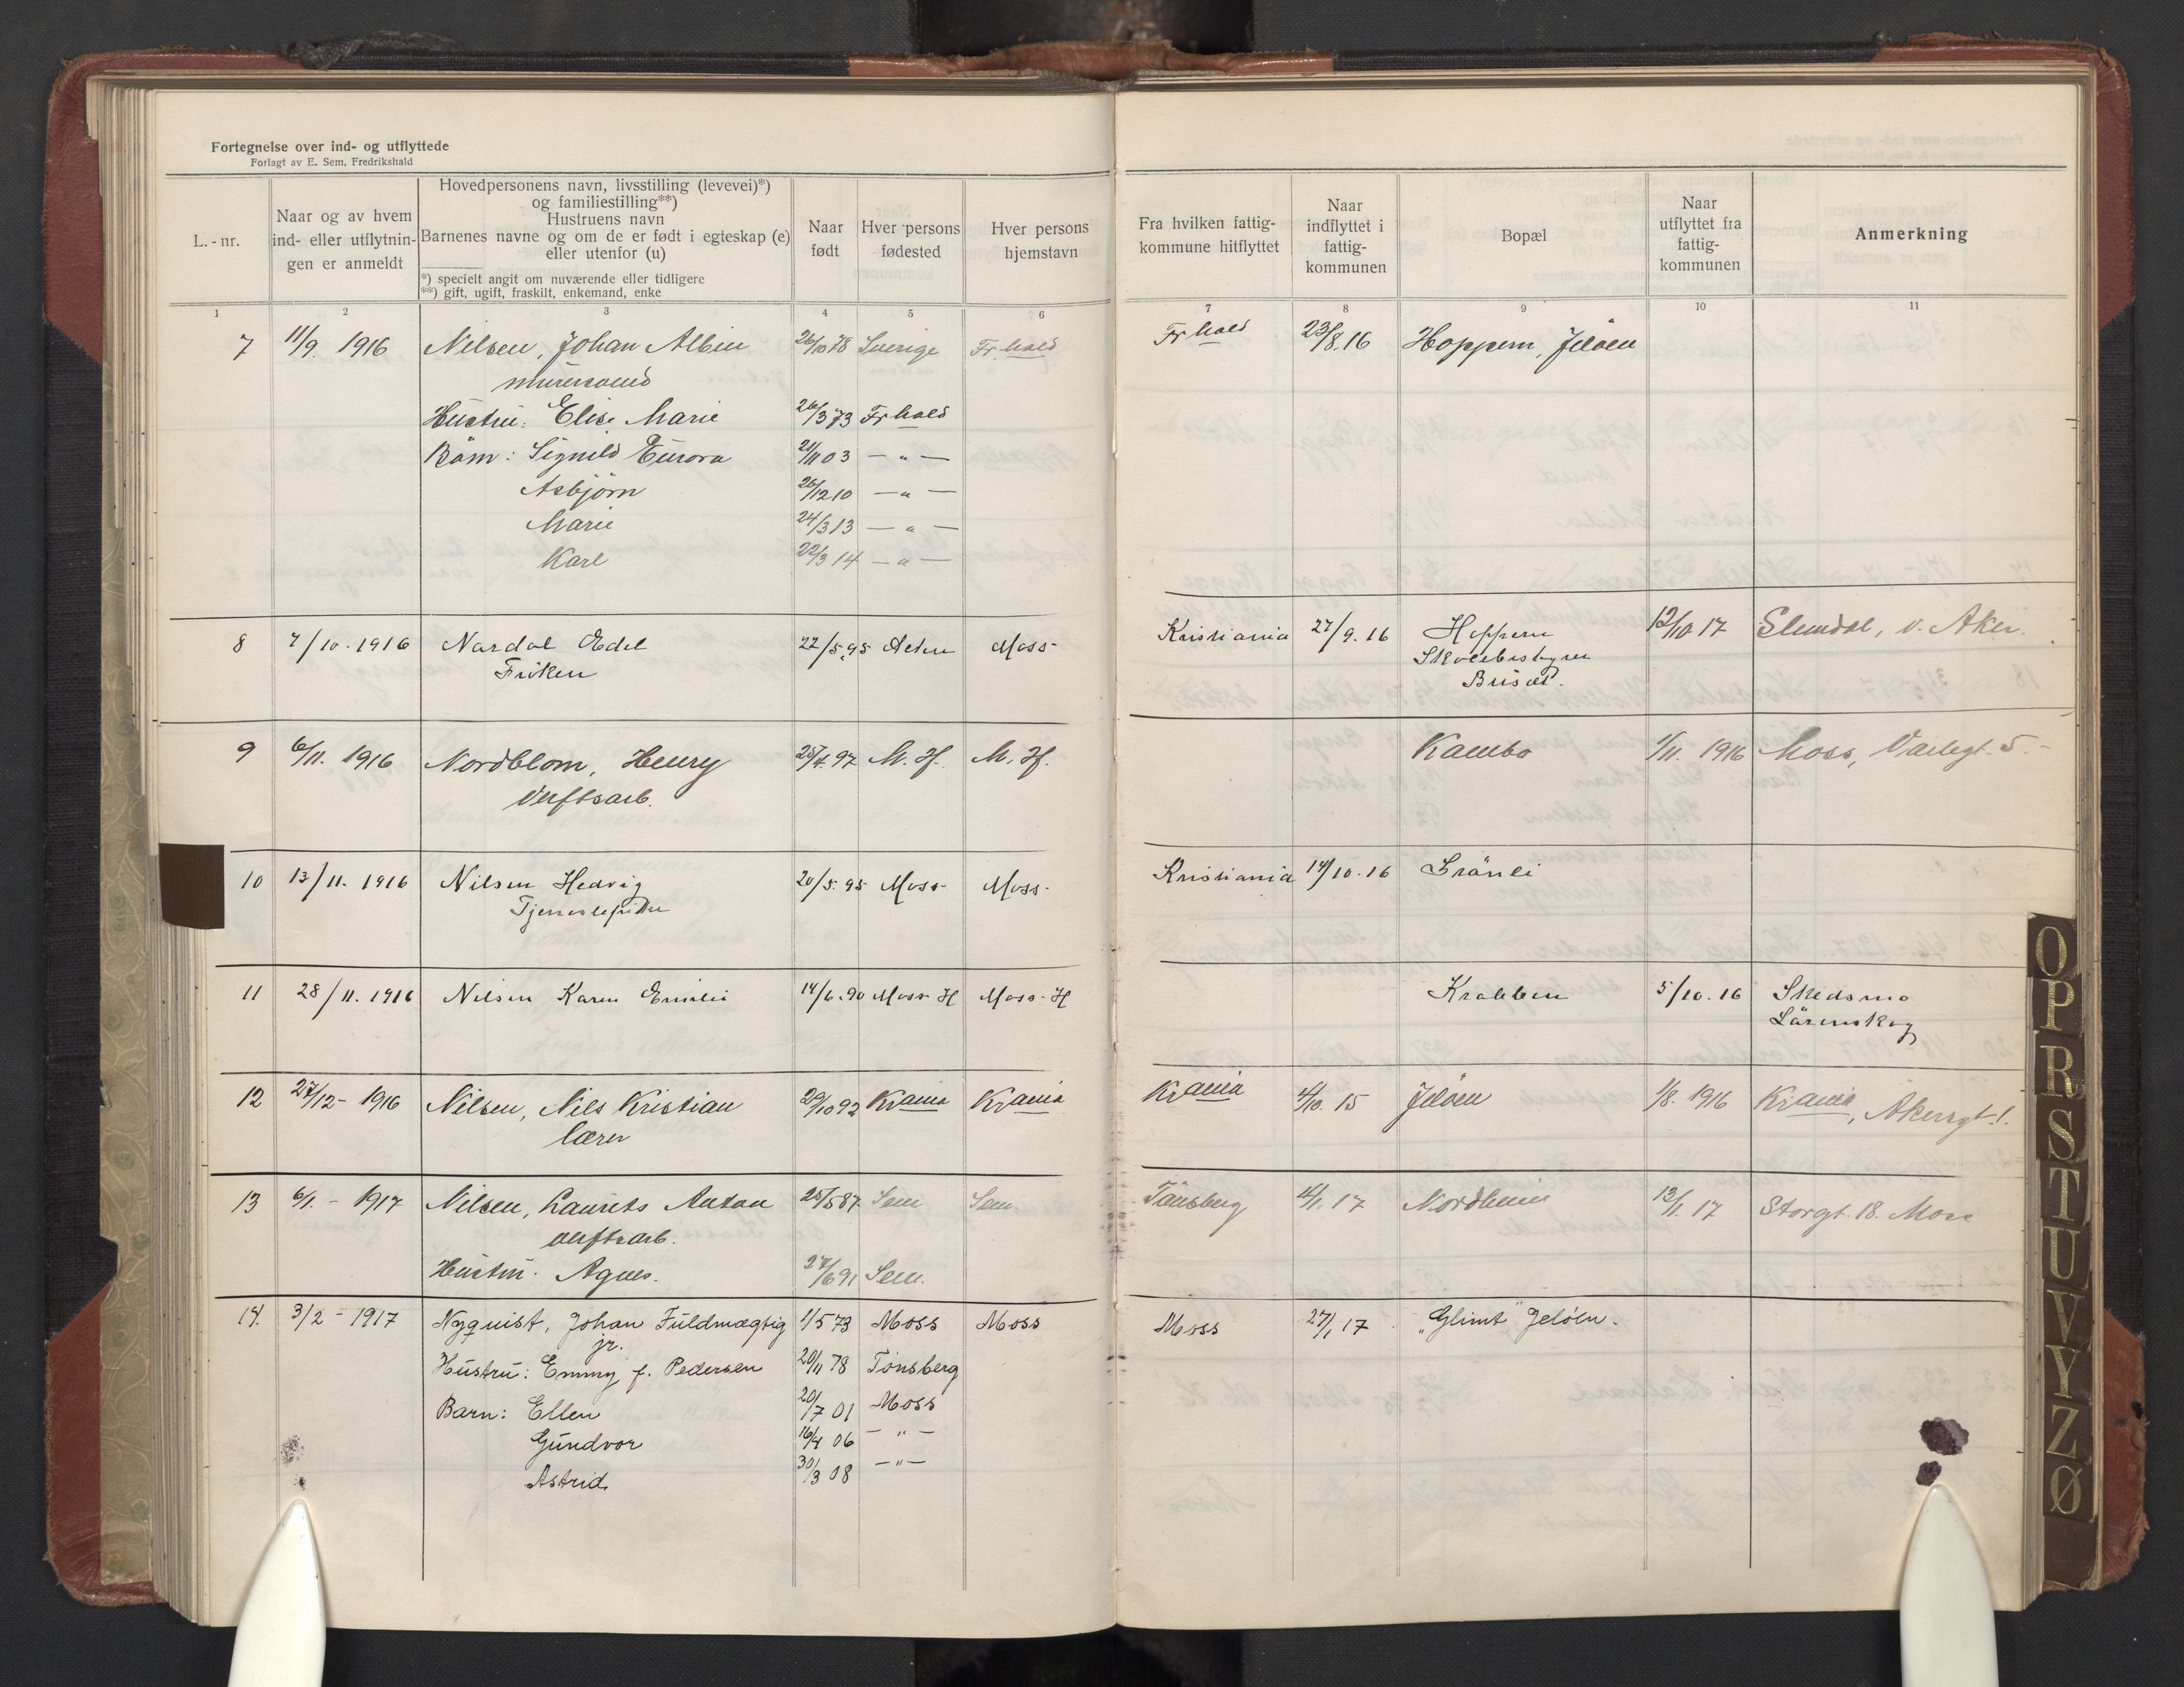 Fortegnelse over ind- og utflyttede
Forlagt av E. Sem, Fredrikshald
L.-nr.
Naar og av hvem
ind- eller utflytnin-
gen er anmeldt
Hovedpersonens navn, livsstilling (levevei)*)
og familiestilling**)
Hustruens navn
Barnenes navne og om de er født i egteskap (e)
eller utenfor (u)
*) specielt angit om nuværende eller tidligere
**) gift, ugift, fraskilt, enkemand, enke
Naar
født
Hver persons
fødested
Hver persons
hjemstavn
Fra hvilken fattig-
kommune hitflyttet
Naar
indflyttet i
fattig-
kommunen
Bopæl
Naar
utflyttet fra
fattig-
kommunen
Anmerkning
1 2 3 4 5 6 7 8 9 10 11
7 11/9. 1916 Nilsen, Johan Albin 26/10 78 Sverige Frhald Frhald 23/8.16 Hoppern, Jeløen
murersvend
Hustru: Elise Marie 26/3 73 Frhald
Barn: Signild Eurora 21/11 03 — " —
Asbjørn 26/12 10 — " —
Marie 24/3 13 — " —
Karl 22/3 14 — " —
8 7/10. 1916 Nardal Edel 22/5.95 Moss Kristiania 27/9.16 Hoppern 12/10 17 v. Aker.
Frøken Skolebestyrer
9 6/11. 1916 Nordblom, Henry 25/4. 97 M. H. M. H. Kambo 1/11. 1916 Moss, Varlegt. 5.
Verftsarb.
10 13/11. 1916 Nilsen Hedvig 20/5.95 Moss Moss Kristiania 14/10.16 Grönli
11 28/11. 1916 Nilsen Karen Emilie 14/6.90 Moss H Moss. H Krabben 5/10.16 Skedsmo
Lörenskog
12 27/12 - 1916 Nilsen, Nils Kristian 29/10 92 Krania Krania Krania 4/10. 15 Jeløen 1/8. 1916 Krania, Akersgt. 1.
lærer
13 6/1. - 1917 Nilsen, Laurits Anton 25/5 87 Sem Sem Tønsberg 4/1. 17 Nordheim 13/1. 17 Storgt. 18. Moss
verftsarb.
Hustru. Agnes. 27/6 91 Sem.
14. 3/2 - 1917 Nyquist, Johan Fuldmægtig 1/5 73 Moss Moss Moss 27/1 17 „Glimt" Jeløen.
jr.
Hustru: Emmy f. Pedersen 20/11 78 Tønsberg
Barn: Ellen 20/7 01 Moss
Gundvor 16/4 06 — " —
Astrid 30/3 08 — " —
O
P
R
S
T
U
V
Y
Z
Ø